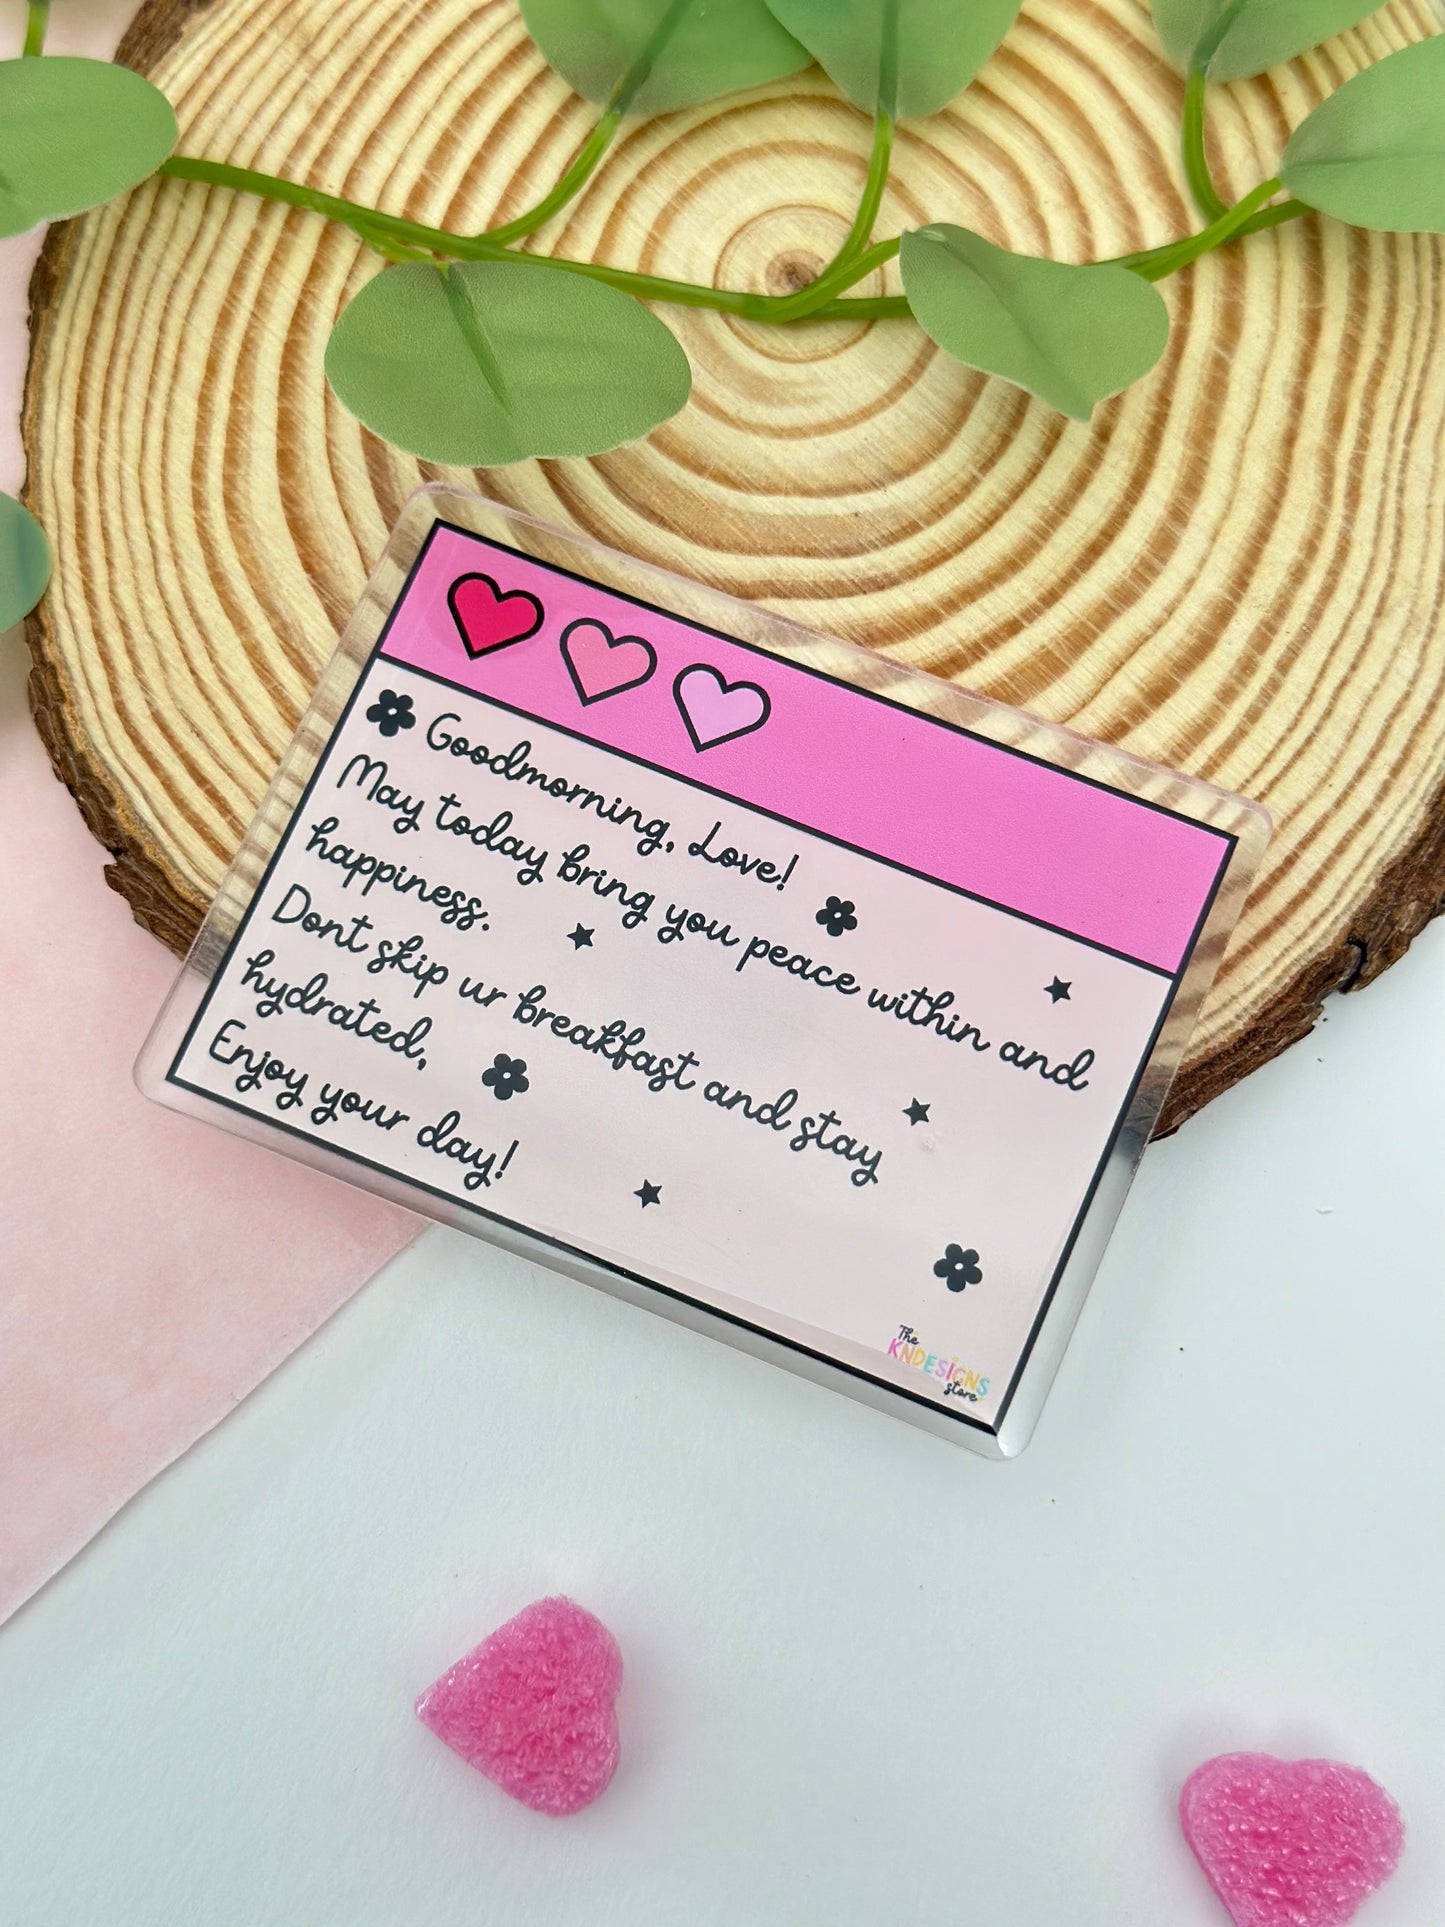 Goodmorning, Love!
May today bring you peace within and
happiness.
Dont skip ur breakfast and stay
hydrated,
Enjoy your day!
The
KNDESIGNS
store